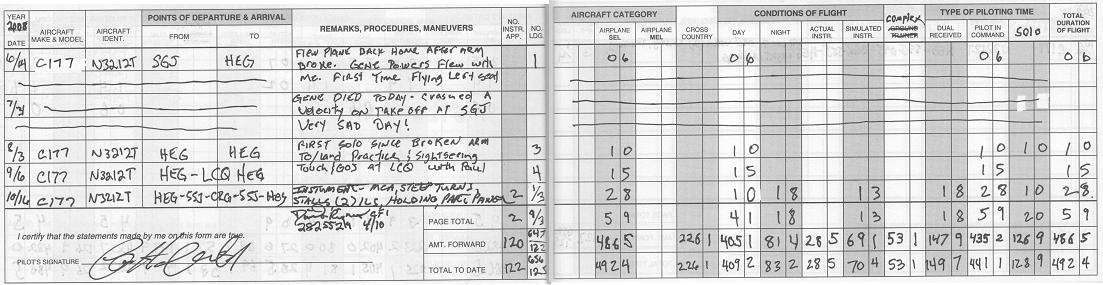 YEAR 2008 POINTS OF DEPARTURE & ARRIVAL AIRCRAFT CATEGORY CONDITIONS OF FLIGHT TYPE OF PILOTING TIME
DATE AIRCRAFT MAKE & MODEL AIRCRAFT IDENT. FROM TO REMARKS, PROCEDURES, MANEUVERS NO. INSTR. APP. NO. LDG. AIRPLANE SEL AIRPLANE MEL CROSS COUNTRY DAY NIGHT ACTUAL INSTR. SIMULATED INSTR. complex GROUND TRAINER DUAL RECEIVED PILOT IN COMMAND SOLO TOTAL DURATION OF FLIGHT
6/14 C177 N3212T SGJ HEG FLEW PLANE BACK HOME AFTER ARM 1 0 6 0 6 0 6 0 6
BROKE. GENE POWERS FLEW WITH
ME. FIRST TIME FLYING LEFT SEAT
7/31 GENE DIED TODAY - CRASHED A
VELOCITY ON TAKE OFF AT SGJ
VERY SAD DAY!
8/3 C177 N3212T HEG HEG FIRST SOLO SINCE BROKEN ARM 3 1 0 1 0 1 0 1 0 1 0
TO/Land Practice & Sightseeing
9/6 C177 N3212T HEG-LCQ HEG Touch/GOs AT LCQ with Paul 4 1 5 1 5 1 5
10/16 C177 N3212T HEG-SSJ-CRG-SSJ-HEG INSTRUMENT- MCA, STEEP TURNS, 2 1/3 2 8 1 0 1 8 1 3 1 8 2 8 1 0 2 8
STALLS (2) ILS, HOLDING, PART PANEL
CFI
2825521 4/10
PAGE TOTAL 2 9/3 5 9 4 1 1 8 1 3 1 8 5 9 2 0 5 9
I certify that the statements made by me on this form are true.
AMT. FORWARD 120 647 122 486 5 226 1 405 1 81 4 28 5 69 1 53 1 147 9 435 2 126 9 486 5
PILOT'S SIGNATURE
TOTAL TO DATE 122 656 125 492 4 226 1 409 2 83 2 28 5 70 4 53 1 149 7 441 1 128 9 492 4